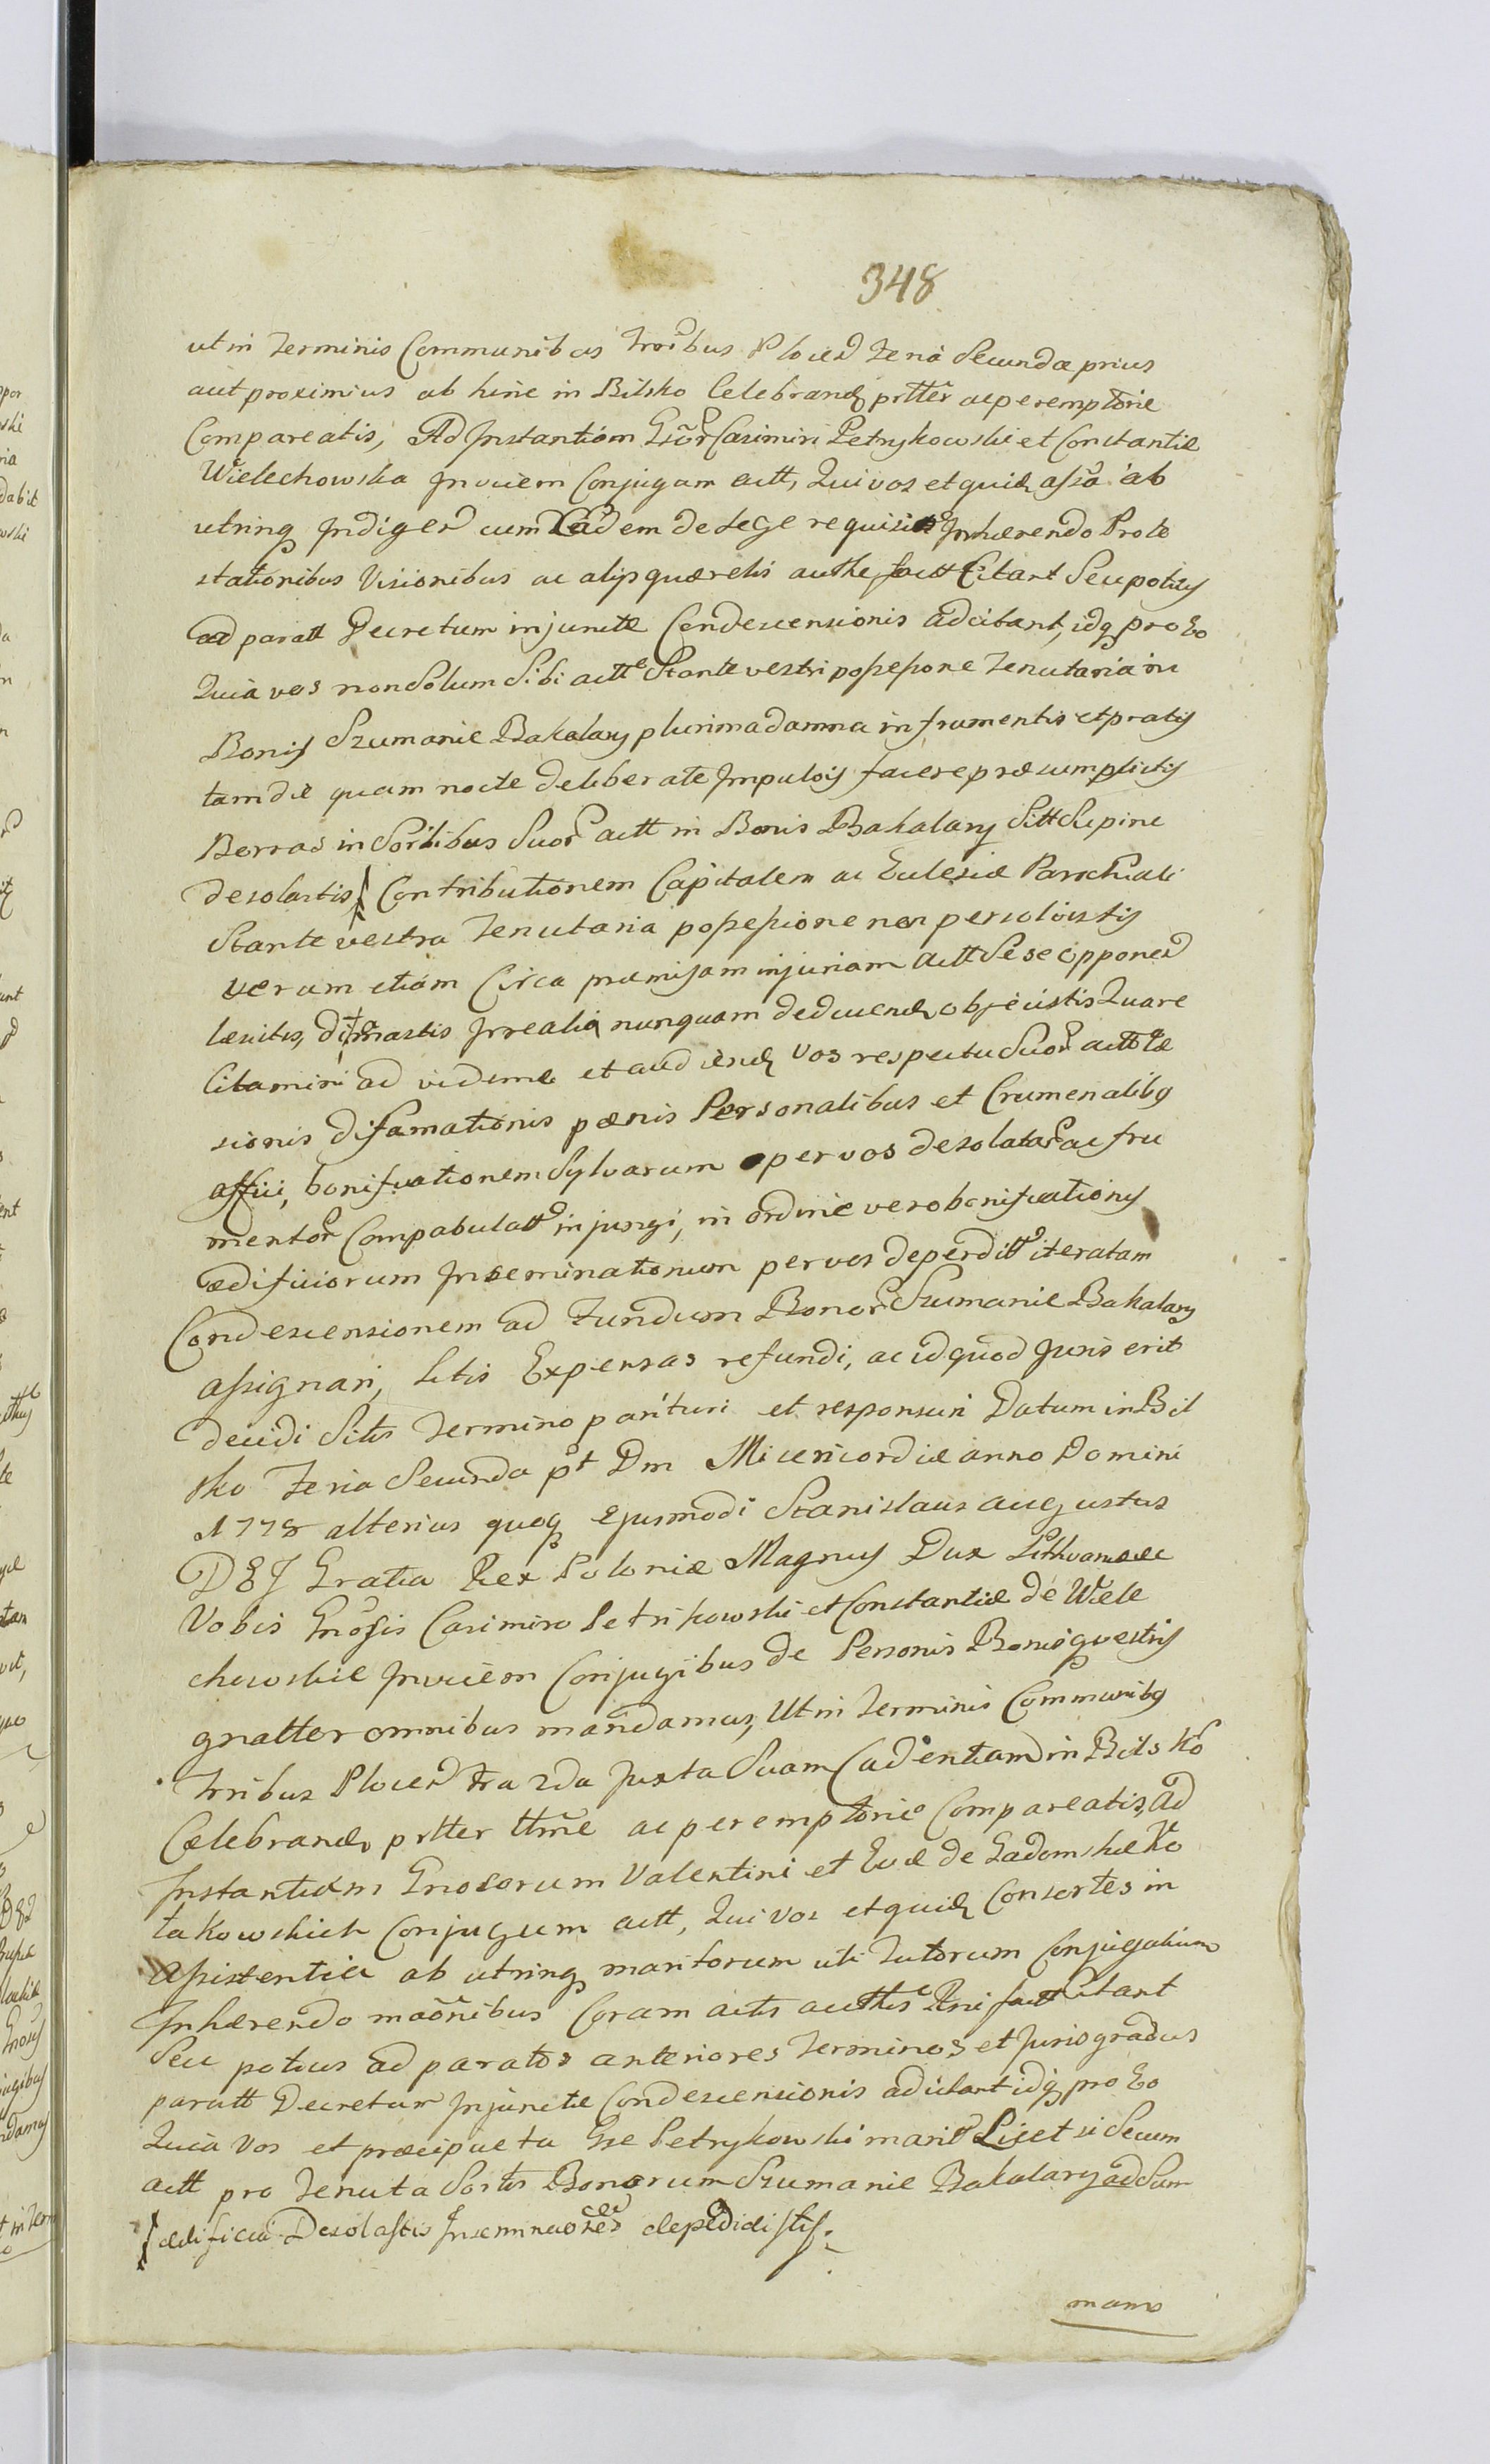 348
ut in Terminis Communibus Tro͠ibus Plocen͠ Feria Secunda prius
aut proximius ab hinc in Bilsko Celebrand prtter ac peremptorie
Compareatis, Ad Instantiam Gsor͠ Casimiri Petrykowski et Constantiæ
Wielechowska Invicem Conjugum actt, Qui vos et quid assa ab
utrinq Indigen͠ cum Eadem de Lege requisit Inhærendo Prote
stationibus Visionibus ac alijs quærelis authe factt Citant Seu potius
ad paratt Decretum injunctæ Condescensionis adcitant, idq pro Eo
Quia vos non Solum Sibi actt Stante vestri possessione Tenutaria in
Bonis Szumanie Bakalary plurima damna in frumentis et pratis
tam die quam nocte deliberate Impulsis facere præsumpsistis
Borras in Sortibus Suor actt in Bonis Bakalary Sitt Supine
desolastis, Contributionem Capitalem ac Eclesiæ Parochiali
Stante vestra Tenutaria possessione non persolvistis
verum etiam Circa præmissam injuriam actt Sese opponen͠
læsistis, difamastis Irrealia nunquam deducend objecistis Quare
Citamini ad vidend et audiend Vos respectu Suor actt læ
sionis difamationis pænis Personalibus et Crumenalibq
affici, bonificationem Sylvarum per vos desolatar ac fru
mentor Compabulatt injungi, in ordine vero bonificationis
ædificiorum Inseminationum per vos deperditt iteratam
Condescensionem ad Fundum Bonor Szumanie Bakalary
assignari, Litis Expensas refundi, ac id quod Juris erit
decidi Sitis Termino parituri et responsuri Datum in Bil
sko Feria Secunda pt Dm Misericordiæ anno Domini
1778 alterius quoq Ejusmodi Stanislaus augustus
DEJ Gratia Rex Poloniæ Magnus Dux Lithvaniæ
Vobis Gnosis Casimiro Petrikowski et Constantiæ de Wiele
chowskie Invicem Conjugibus de Personis Bonisq vestris
gnalter omnibus mandamus, Ut in Terminis Communibq
Tribus Plocen͠ fra 2da Juxta Suam Cadentiam in Bilsko
Celebrand prtter ttrñe ac peremptorie Compareatis, Ad
Instantiam Gnosorum Valentini et Evæ de Gadomskie Ko
takowskich Conjugum actt, Qui vos et quid Consortes in
Assistentia ab utrinq maritorum uti Tutorum Conjugalium
Inhærendo mao͠nibus Coram actis authis Pnis factt Citant
Seu potius ad paratos anteriores Terminos et Juris gradus
paratt Decretum Injunctæ Condescensionis adcitant idq pro Eo
Quia Vos et præcipue tu Gse Petrykowski marite Licet si Secum
actt pro Tenuta Sortis Bonorum Szumanie Bakalary ad Sum
ædificia Desolastis Inseminaones deperdidistis.
mam